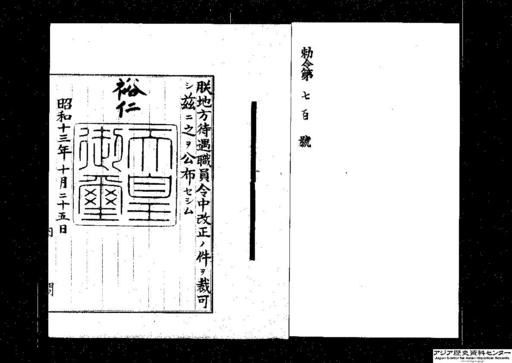 勅令第七百號
朕地方待遇職員令中改正ノ件ヲ裁可
シ茲ニ之ヲ公布セシム
裕仁
天皇
御璽
昭和十三年十月二十五日
内閣
アジア歴史資料センター
Japan Center for Asian Historical Records